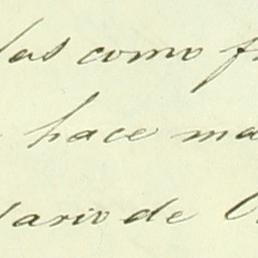 las como f
hace ma
lario de